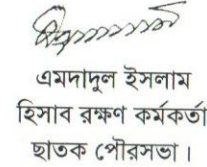 এমদাদুল ইসলাম
হিসাব রক্ষণ কর্মকর্তা
ছাতক পৌরসভা।